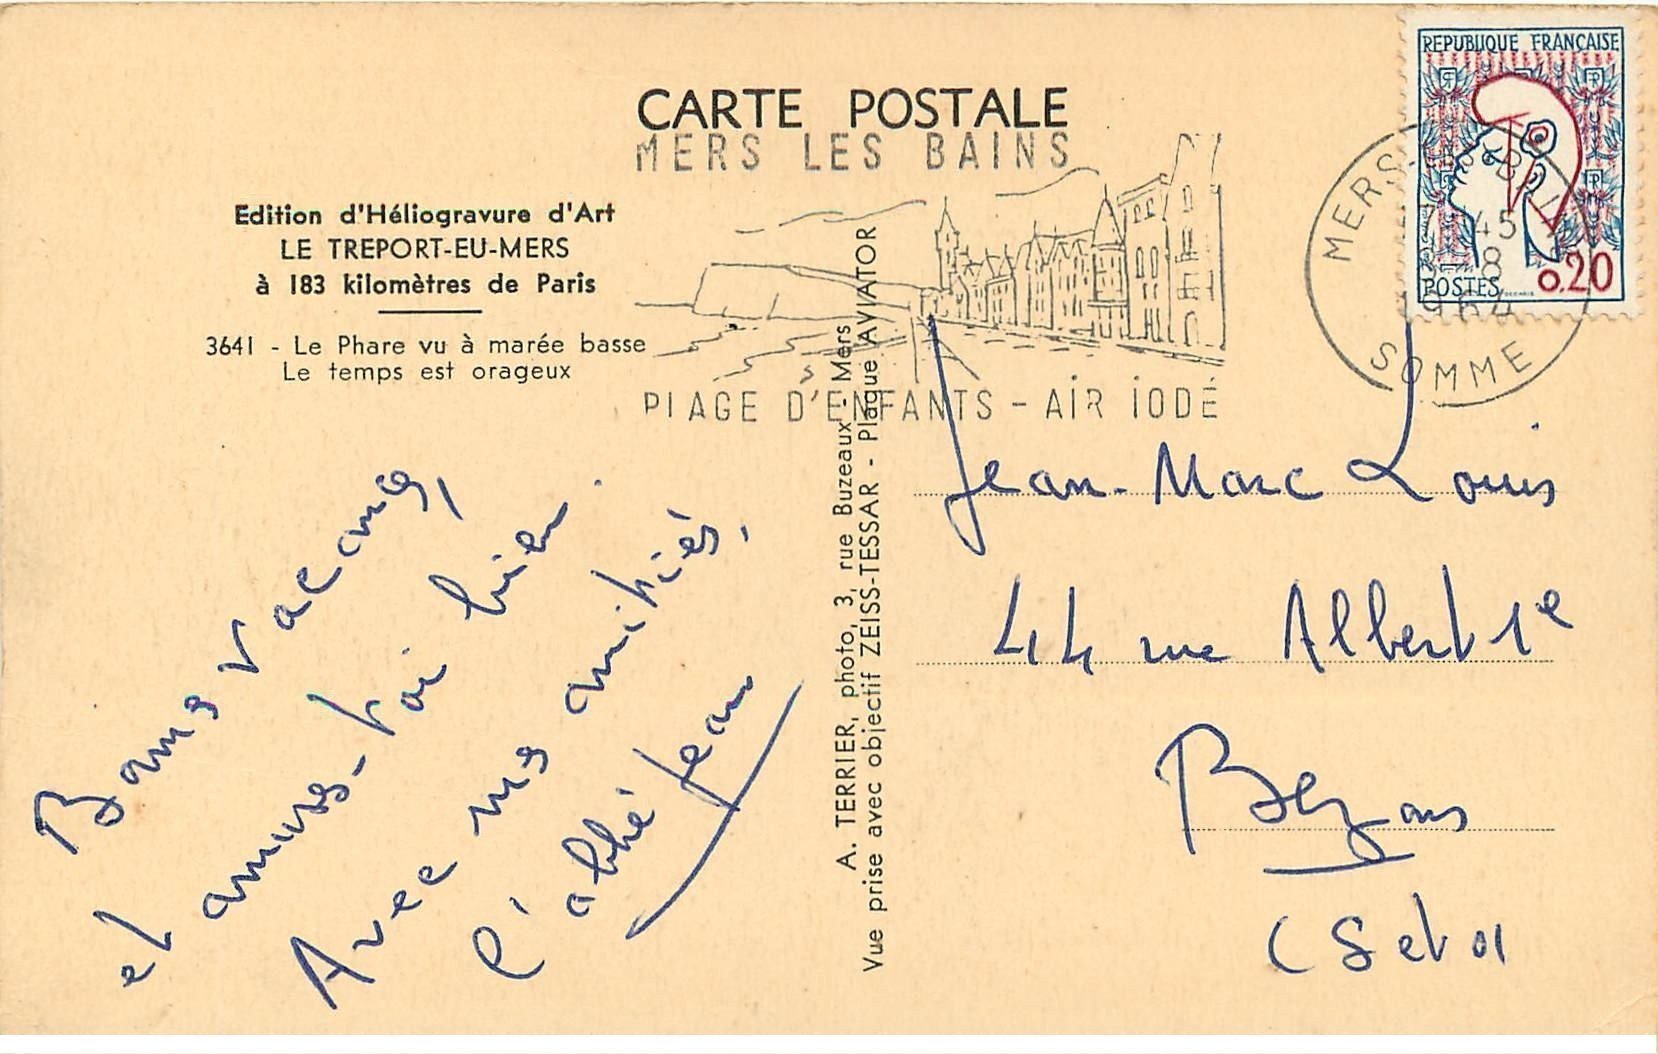 CARTE POSTALE
MERS LES BAINS
PLAGE D'ENFANTS - AIR IODÉ
Edition d'Héliogravure d'Art
LE TREPORT-EU-MERS
à 183 kilomètres de Paris
3641 - Le Phare vu à marée basse
Le temps est orageux
REPUBLIQUE FRANÇAISE
POSTES 0.20
MERS-LES-BAINS
45
8
1964
SOMME
A. TERRIER, photo, 3, rue Buzeaux - Mers
Vue prise avec objectif ZEISS-TESSAR - Plaque AVIATOR
Bonnes vacances,
et amuses-toi bien.
Avec mes amitiés,
l'abbé Jean
Jean-Marc Louis
44 rue Albert 1e
Bezons
(S et O)